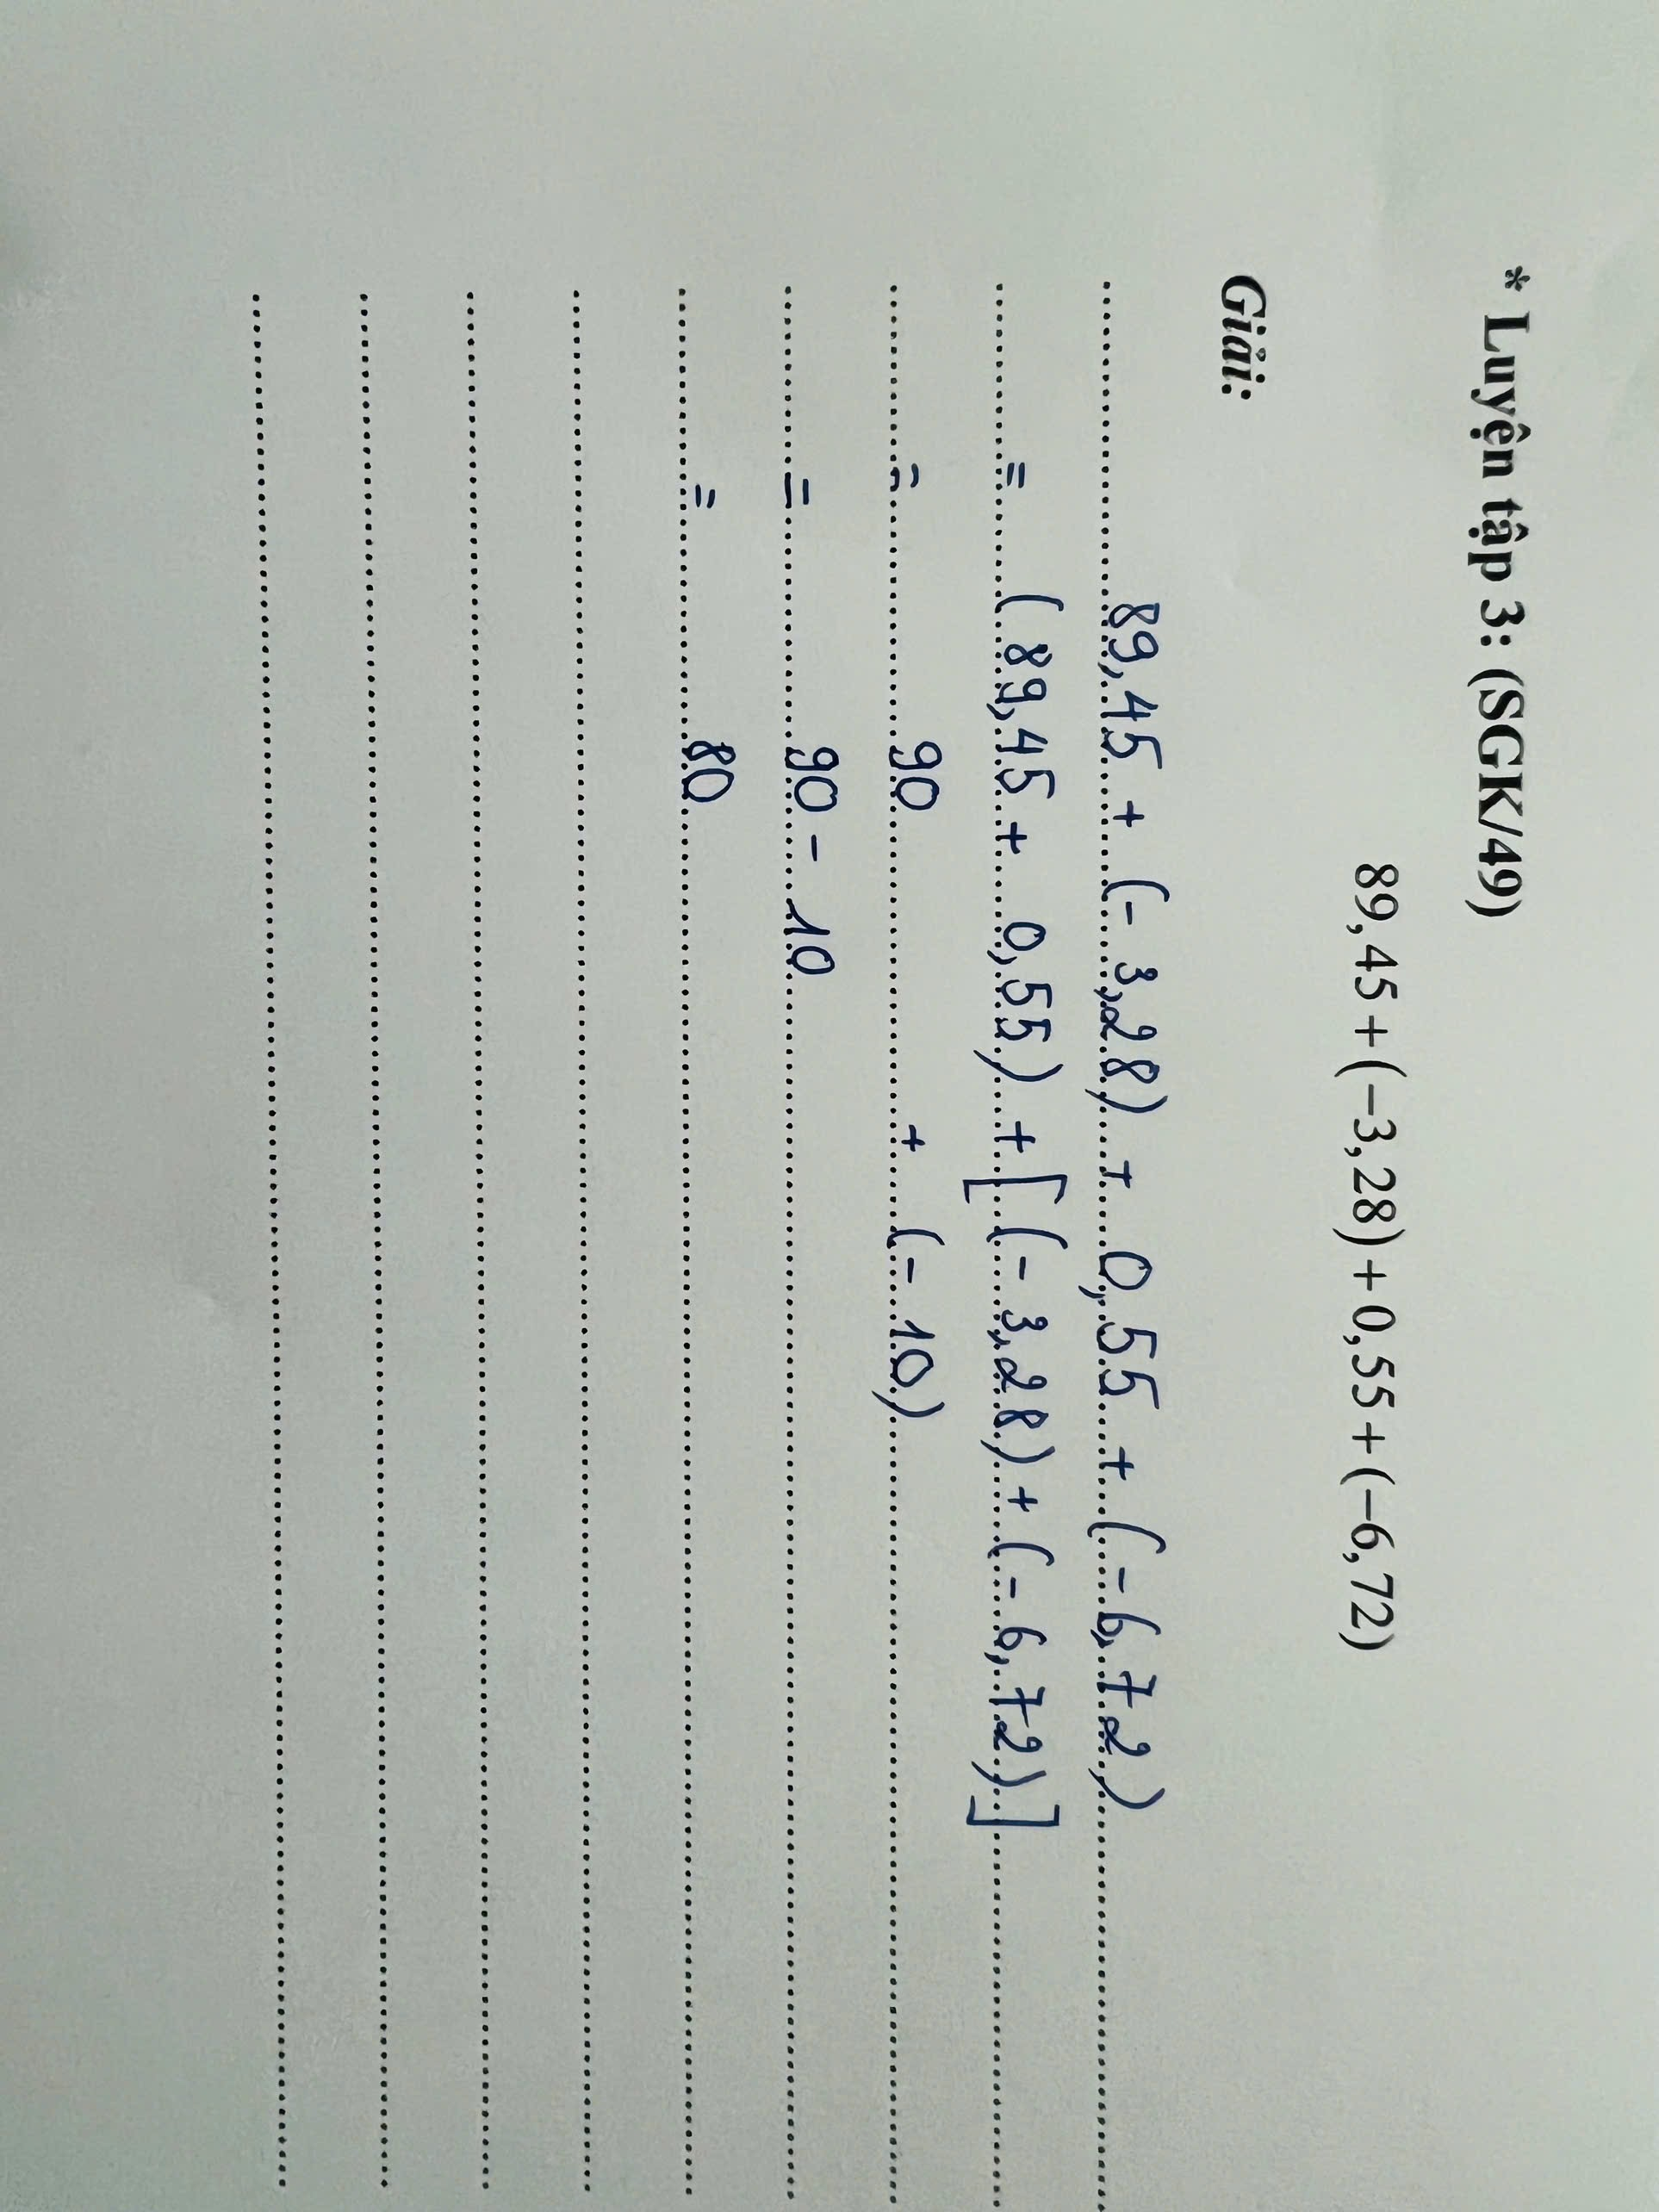 * Luyện tập 3: (SGK/49)
89,45 + (−3,28) + 0,55 + (−6,72)
Giải:
89,45 + (- 3,28) + 0,55 + (- 6,72)
= (89,45 + 0,55) + [(- 3,28) + (- 6,72)]
= 90 + (- 10)
= 90 - 10
= 80